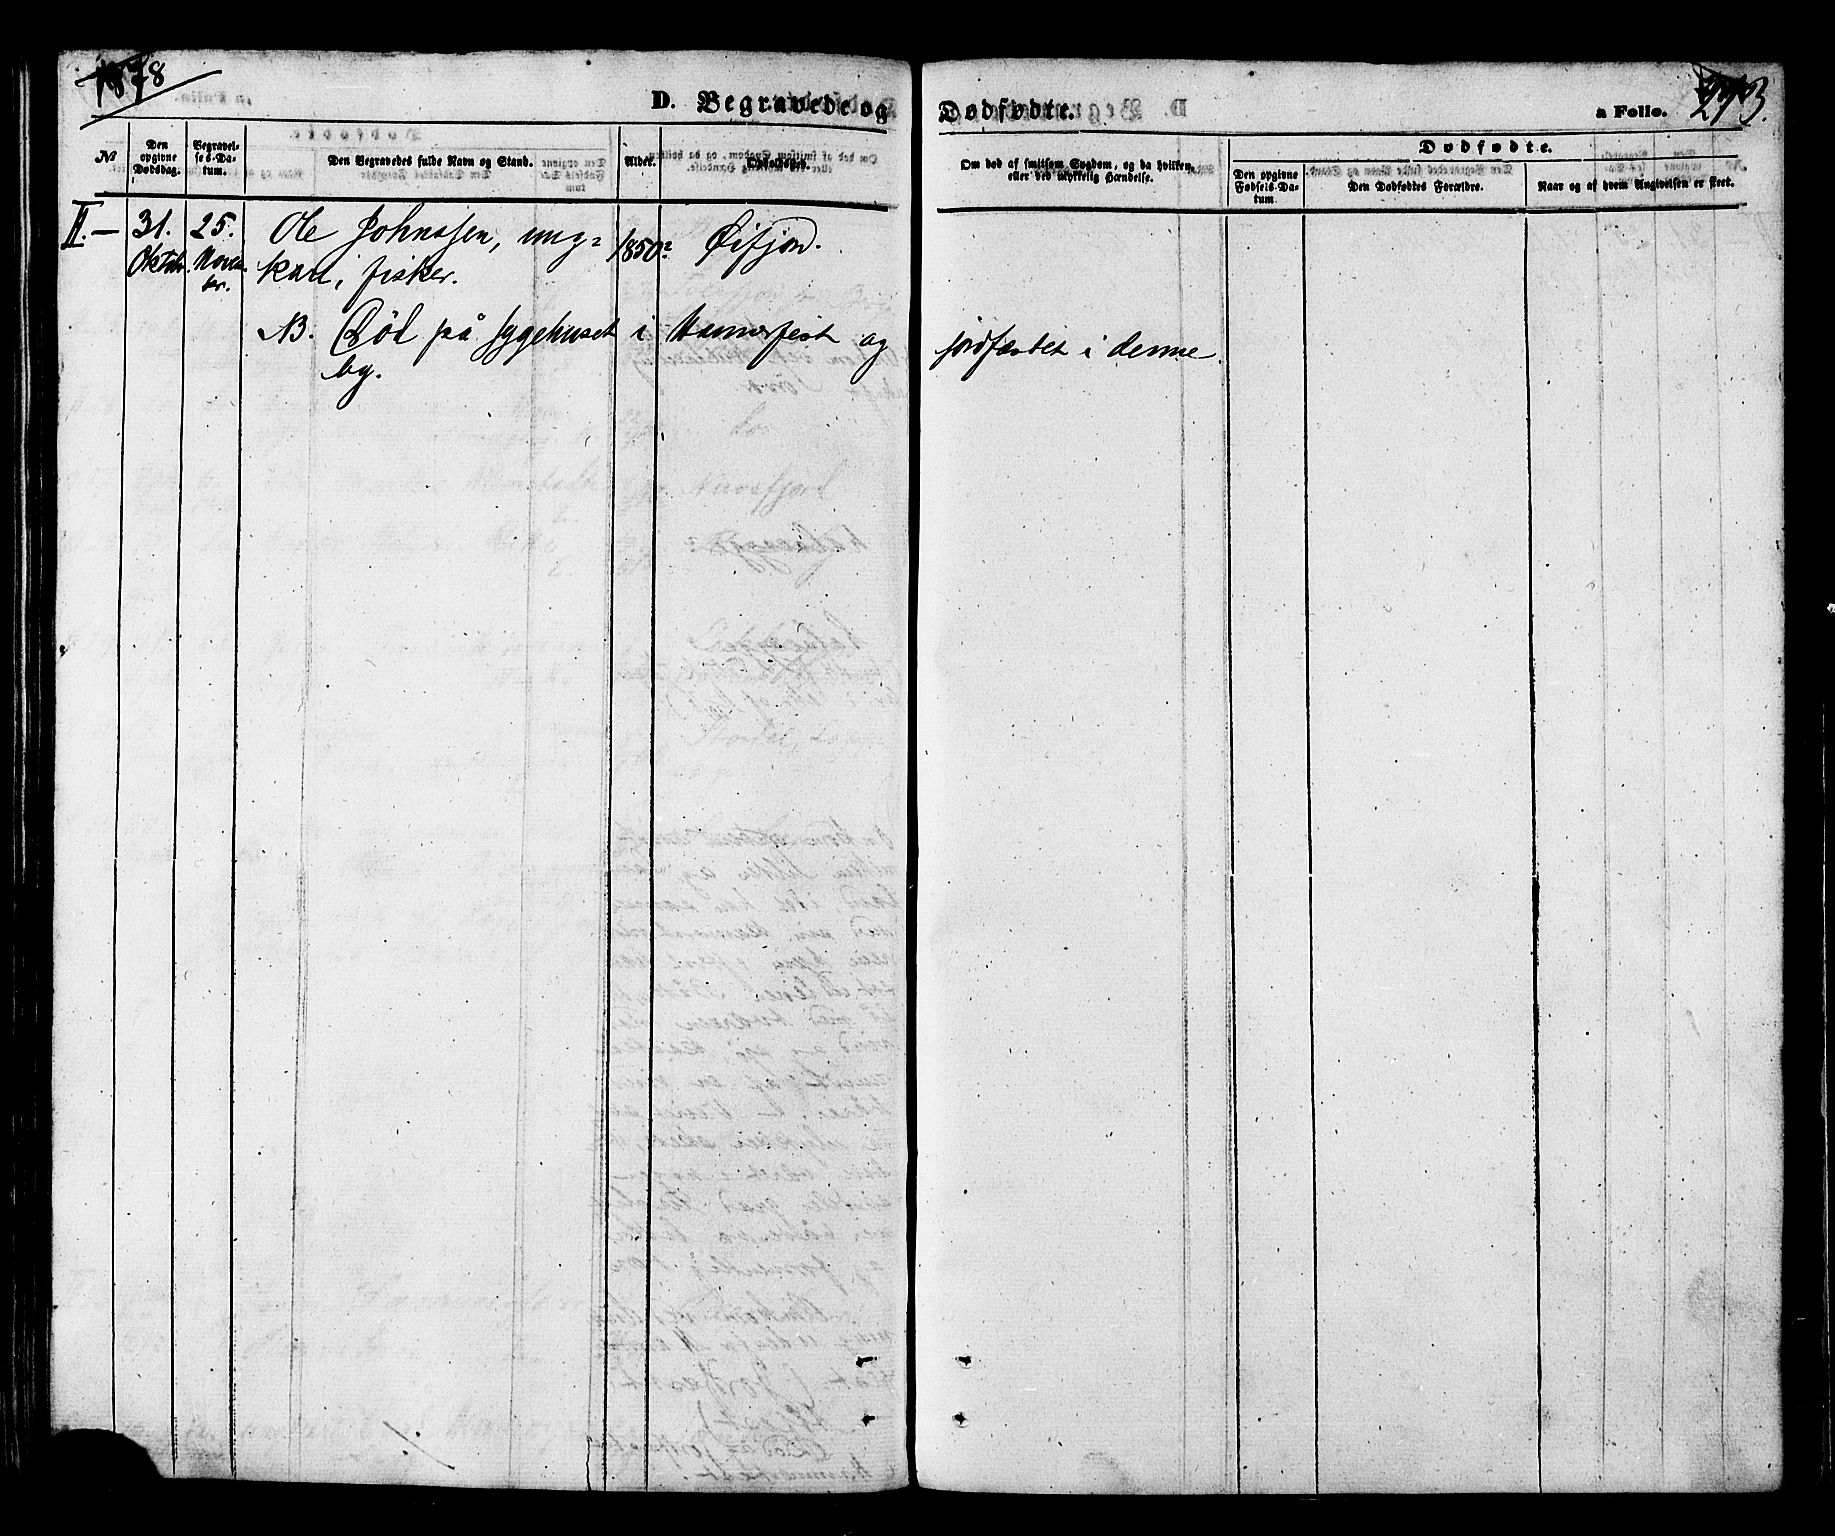 1878
D. Begravede og Dødfødte. a Folio. 293.
No
Den opgivne Dødsdag.
Begravelses-Datum.
Den Begravedes fulde Navn og Stand.
Alder.
Opholdssted.
Om død af smitsom Sygdom, og da hvilken,
eller ved ulykkelig Hændelse.
Dødfødte.
Den opgivne Fødsels-Datum
Den Dødfødtes Forældre.
Naar og af hvem Angivelsen er skeet.
II. – 31. 25. Ole Johnssen, ung= 1850? Øifjord.
Oktob. Novem kar, fisker.
ber.
NB. Død på sygehuset i Hammerfest og jordfæstet i denne
by.